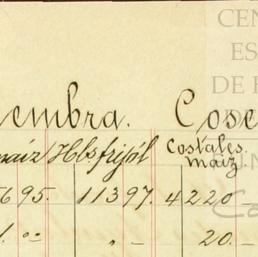 CEN
ES
DE H
embra. Cose
maíz Hbs frijól Costales maíz.
695. 11397. 4220 –
1. ,, ,, – 20. –